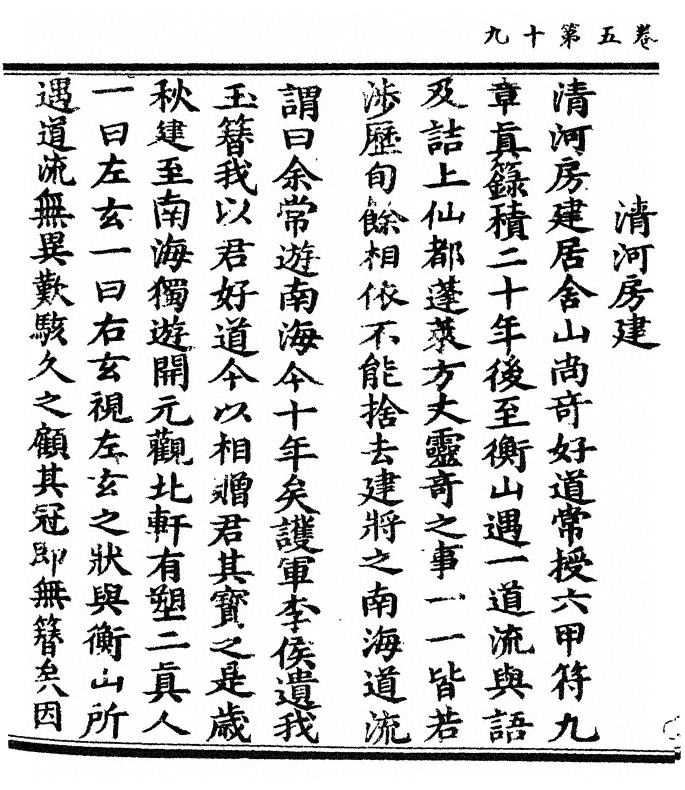 卷五第十九
清河房建
清河房建居舍山尚奇好道常授六甲符九
章眞籙積二十年後至衡山遇一道流與語
及詰上仙都蓬萊方丈靈奇之事一一皆若
涉歷旬餘相依不能捨去建將之南海道流
謂曰余常遊南海今十年矣護軍李侯遺我
玉簪我以君好道今以相贈君其寶之是歲
秋建至南海獨遊開元觀北軒有塑二眞人
一曰左玄一曰右玄視左玄之狀與衡山所
遇道流無異歎駭久之顧其冠即無簪矣因